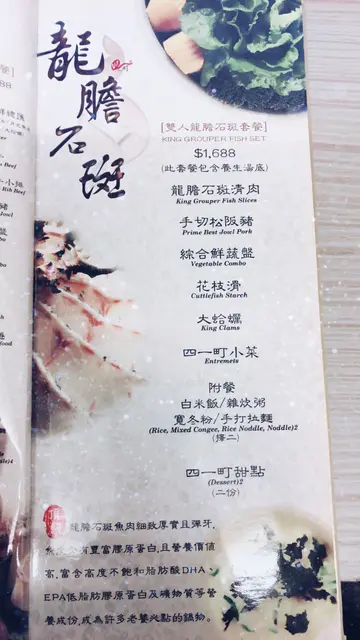 龍膽石斑
[雙人龍膽石斑套餐]
KING GROUPER FISH SET
$1,688
(此套餐包含養生湯底)
龍膽石斑清肉
King Grouper Fish Slices
手切松阪豬
Prime Best Jowl Pork
綜合鮮蔬盤
Vegetable Combo
花枝滑
Cuttlefish Starch
大蛤蠣
King Clams
四一町小菜
Entremets
附餐
白米飯/雜炊粥
寬冬粉/手打拉麵
(Rice, Mixed Congee, Rice Noddle, Noddle)2
(擇二)
四一町甜點
(Dessert)2
(二份)
龍膽石斑魚肉細致厚實且彈牙,
富膠原蛋白,且營養價值
高,富含高度不飽和脂肪酸DHA、
EPA低脂肪膠原蛋白及礦物質等營
養成份,成為許多老饕必點的鍋物。